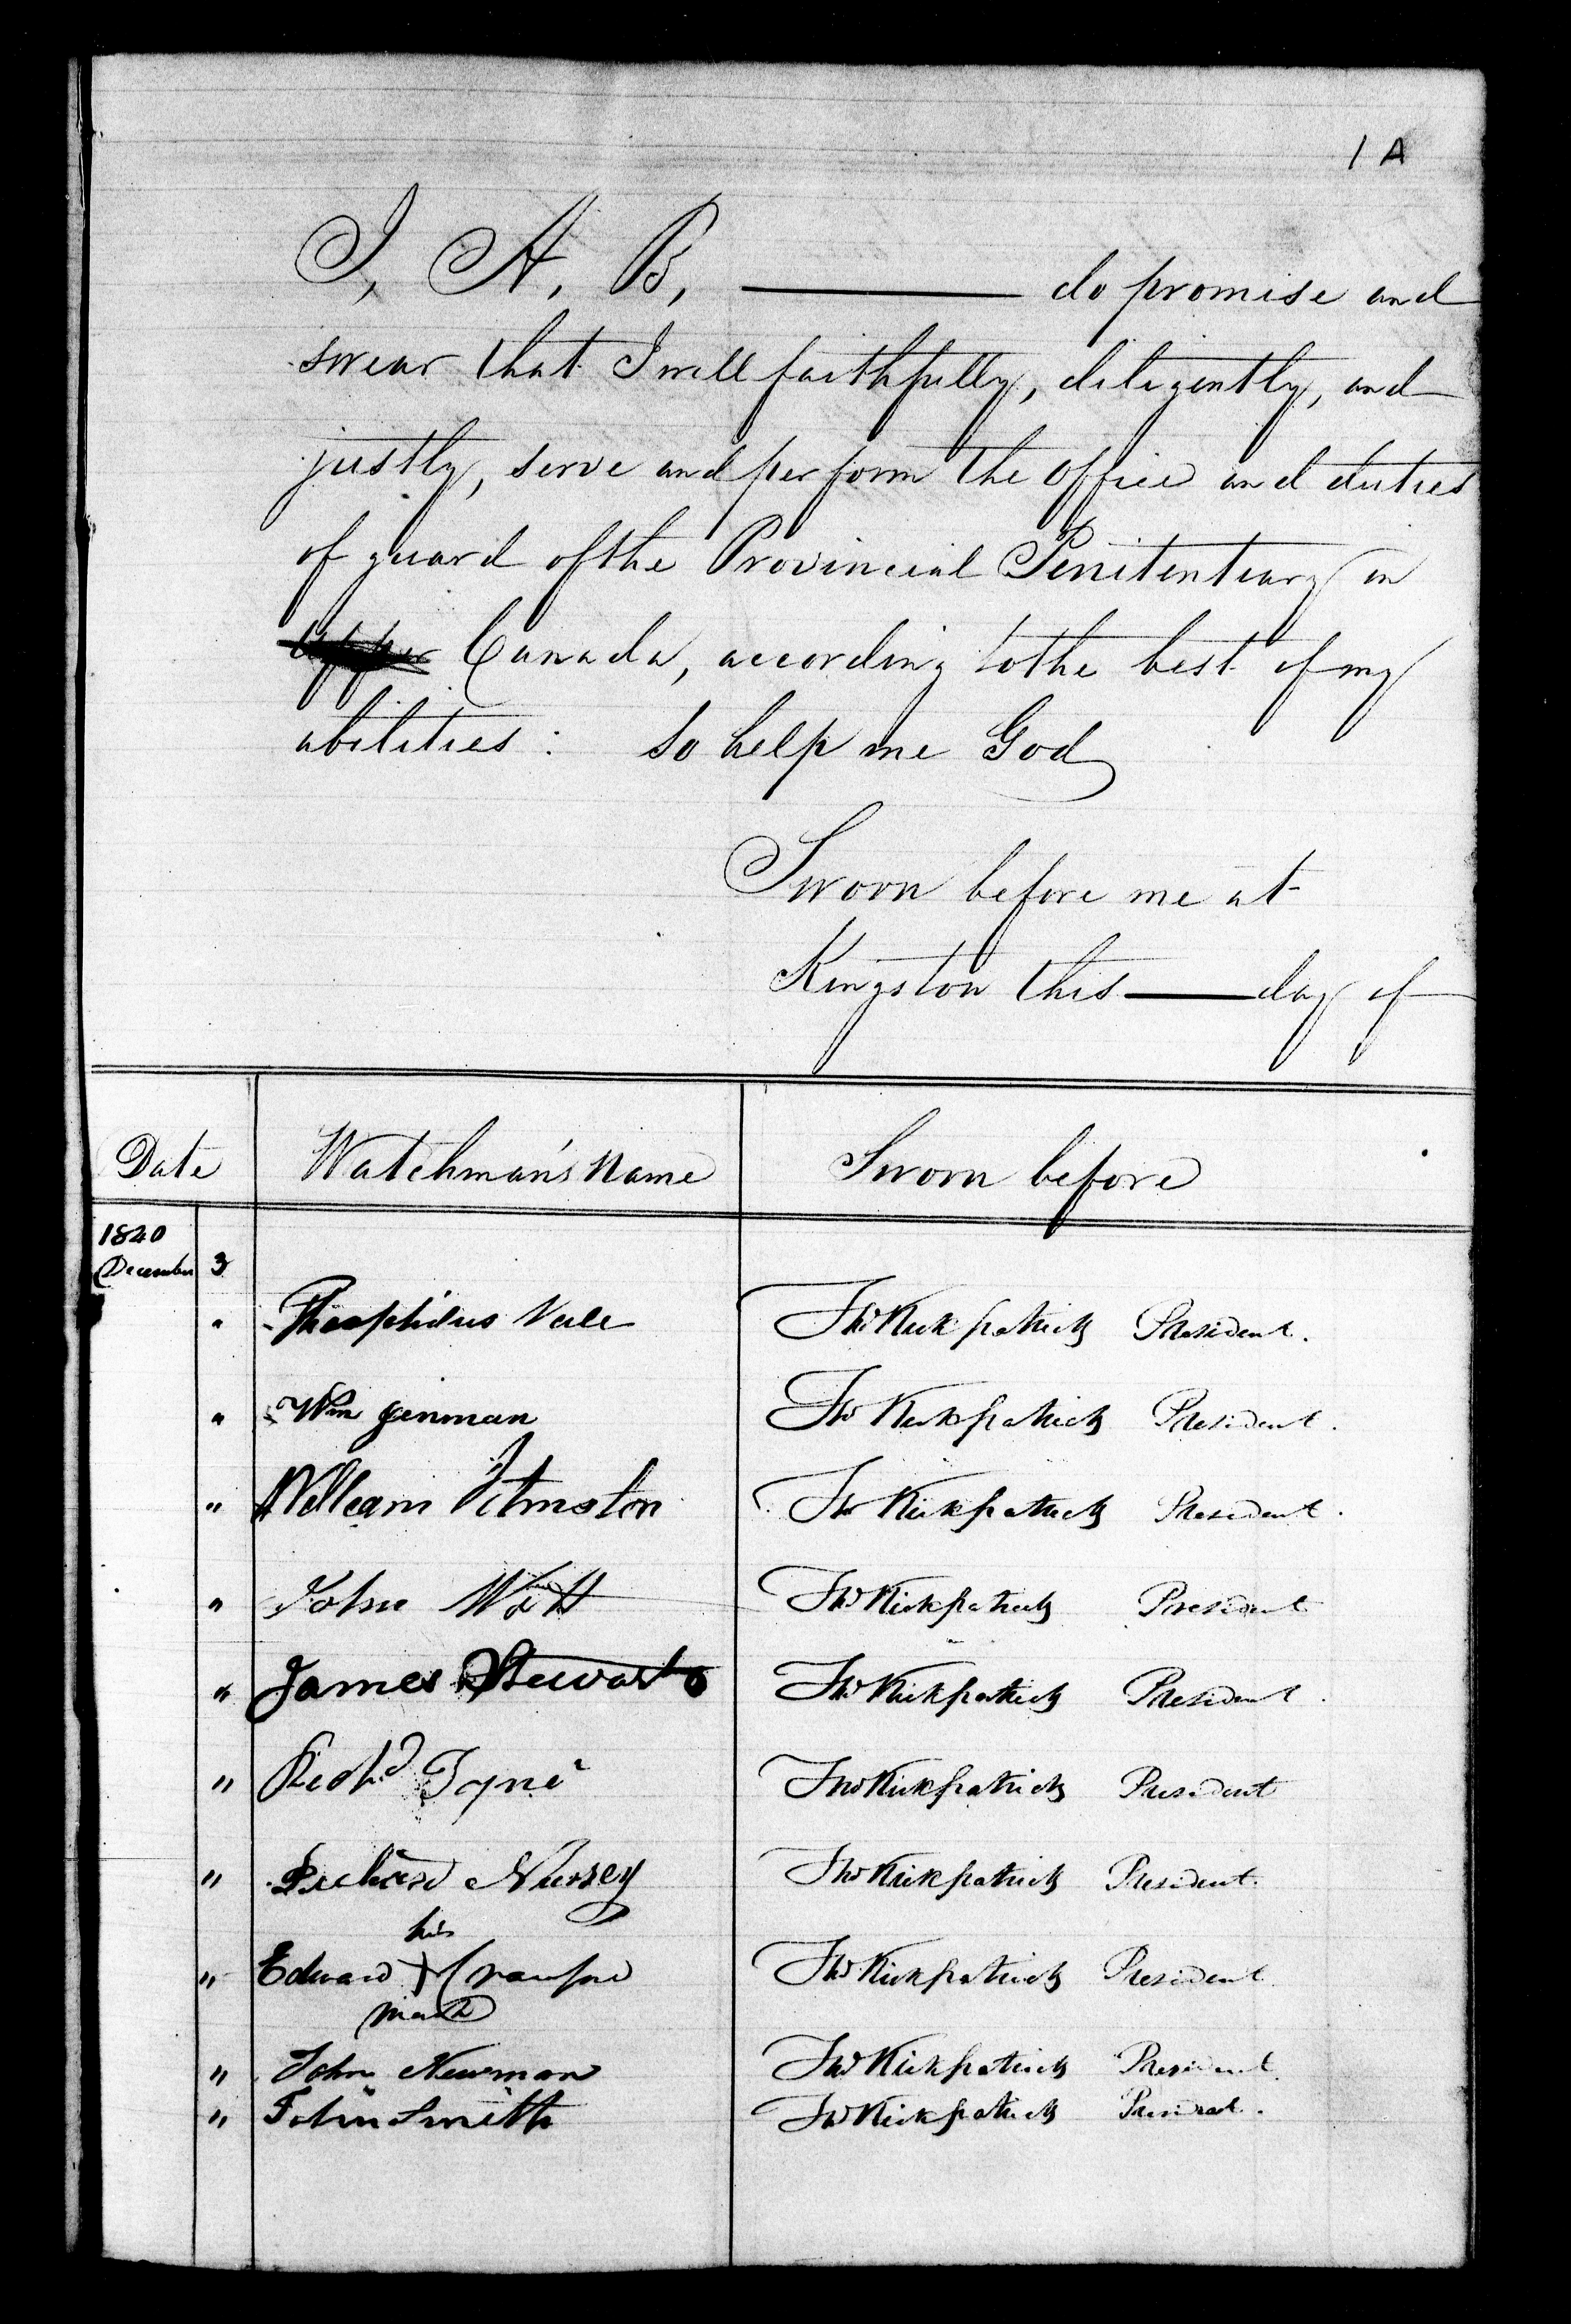 1 A
I, A, B, ——— do promise and
swear that I will faithfully, diligently, and
justly, serve and perform the office and duties
of guard of the Provincial Penitentiary in
Upper Canada, according to the best of my
abilities: So help me God
Sworn before me at
Kingston this —— day of
Date Watchman's Name Sworn before
1840
December 3
" Theophilus Thos Kirkpatrick President.
" Wm Jinman Thos Kirkpatrick President.
" William Thos Kirkpatrick President.
" John Watt Thos Kirkpatrick President
" James Stewart Thos Kirkpatrick President.
" Richd Tyne Thos Kirkpatrick President
" Richard Nursey Thos Kirkpatrick President.
his
" Edward + Crawford Thos Kirkpatrick President
mark
" John Newman Thos Kirkpatrick President
" John Smith Thos Kirkpatrick President.